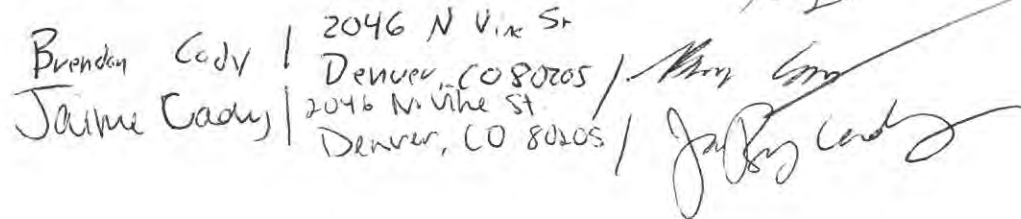 Brendan Cady | 2046 N Vine St
Denver, CO 80205 /
Jaime Cady | 2046 N. Vine St
Denver, CO 80205 /